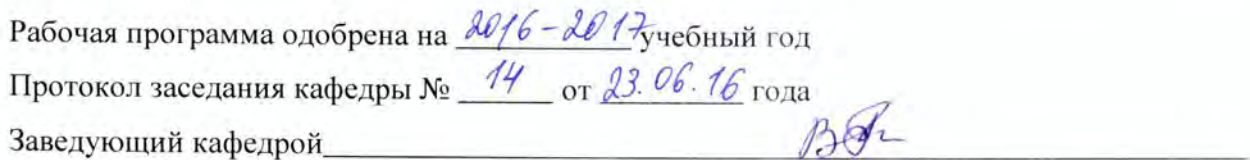 Рабочая программа одобрена на 2016-2017 учебный год
Протокол заседания кафедры № 14 от 23.06.16 года
Заведующий кафедрой